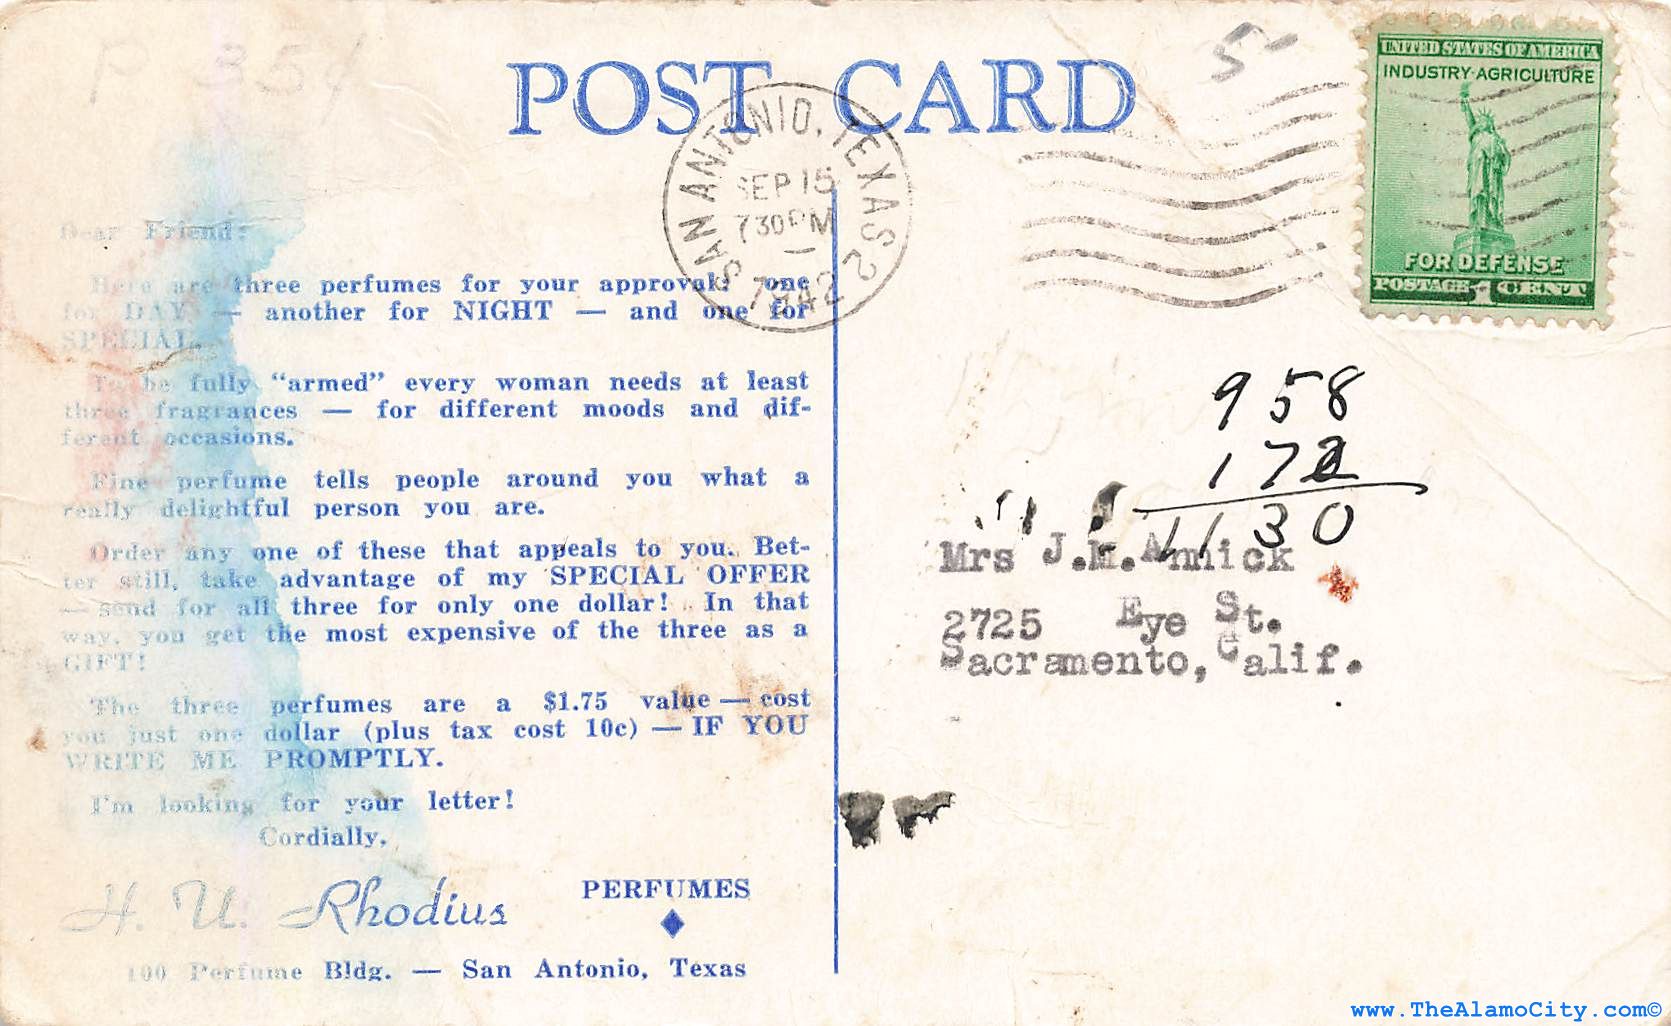 P 35¢
POST CARD
SAN ANTONIO, TEXAS 2
SEP 15
7 30 PM
1942
5
UNITED STATES OF AMERICA
INDUSTRY·AGRICULTURE
FOR DEFENSE
POSTAGE 1 CENT
Dear Friend:
Here are three perfumes for your approval: one
for DAY — another for NIGHT — and one for
SPECIAL.
To be fully “armed” every woman needs at least
three fragrances — for different moods and dif-
ferent occasions.
Fine perfume tells people around you what a
really delightful person you are.
Order any one of these that appeals to you. Bet-
ter still, take advantage of my SPECIAL OFFER
— send for all three for only one dollar! In that
way, you get the most expensive of the three as a
GIFT!
The three perfumes are a $1.75 value — cost
you just one dollar (plus tax cost 10c) — IF YOU
WRITE ME PROMPTLY.
I'm looking for your letter!
Cordially,
H. U. Rhodius
PERFUMES
100 Perfume Bldg. — San Antonio, Texas
958
172
1130
Mrs J.M. Annick
2725 Eye St.
Sacramento, Calif.
www.TheAlamoCity.com©